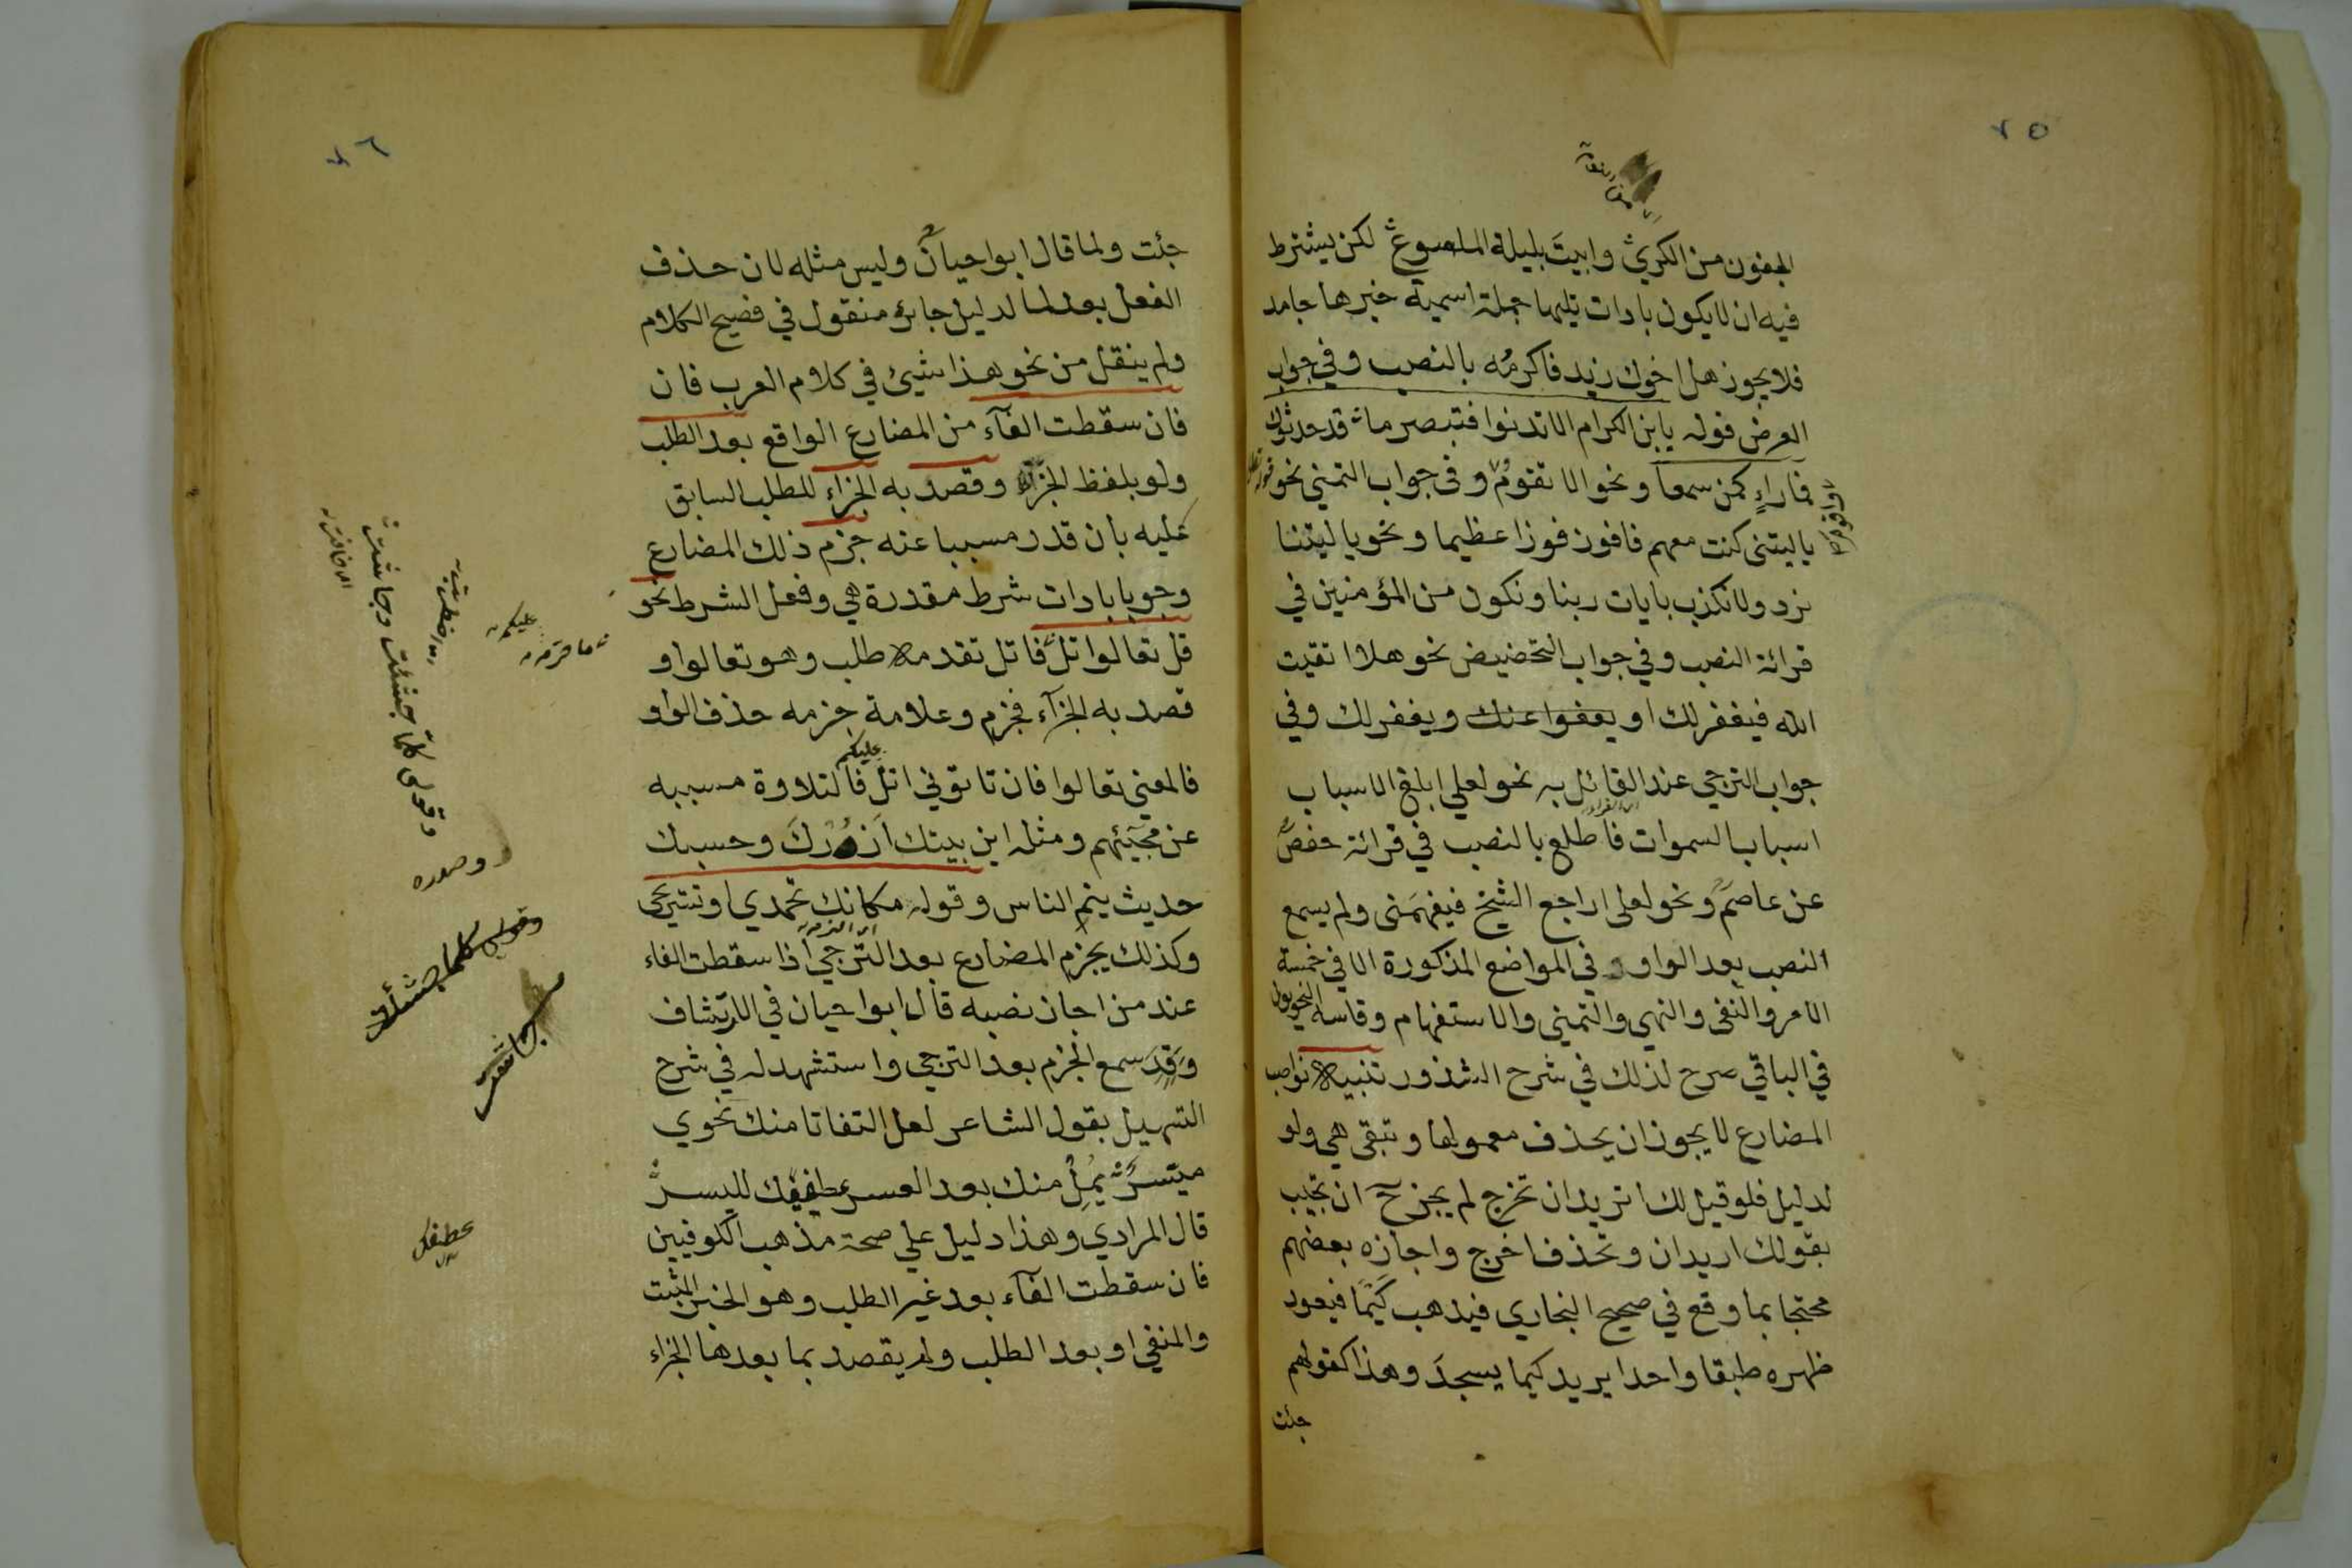 ٢٥
الجفون من الكرى وابيت بليلة الملسوع لكن يشترط
فيه ان لا يكون بادات تليها جملة اسمية خبرها جامد
فلا يجوز هل اخوك زيد فاكرمه بالنصب وفي جواب
العرض قوله يابن الكرام الا تدنوا فتبصر ما قد حدثوك
فما راءٍ كمن سمعا ونحو الا تقوم وفى جواب التمني نحو
يا ليتنى كنت معهم فافوز فوزا عظيما ونحو يا ليتنا
نرد ولا نكذب بايات ربنا ونكون من المؤمنين في
قرائة النصب وفي جواب التحضيض نحو هلا اتقيت
الله فيغفر لك او يعفوا عنك ويغفر لك وفي
جواب الترجي عند القائل به نحو لعلي ابلغ الاسباب
اسباب السموات فاطلع بالنصب في قرائة حفص
عن عاصم ونحو لعلى اراجع الشيخ فيفهمنى ولم يسمع
النصب بعد الواو في المواضع المذكورة الا في خمسة
الامر والنفى والنهي والتمني والاستفهام وقاسه النحويون
في الباقي صرح لذلك في شرح الشذور تنبيه نواصب
المضارع لا يجوز ان يحذف معمولها وتبقى هي ولو
لدليل فلو قيل لك اتريد ان تخرج لم يجز ح ان تجيب
بقولك اريد ان وتحذف اخرج واجازه بعضهم
محتجا بما وقع في صحيح البخاري فيذهب كيما فيعود
ظهره طبقا واحدا يريد كيما يسجد وهذا كقولهم
جئت
٢٦
جئت ولما قال ابوا حيان وليس مثله لان حذف
الفعل بعد لما لدليل جائز منقول في فصيح الكلام
ولم ينقل من نحو هذا شيئ في كلام العرب فان
فان سقطت الفآء من المضارع الواقع بعد الطلب
ولو بلفظ الخبر وقصد به الجزاء للطلب السابق
عليه بان قدر مسببا عنه جزم ذلك المضارع
وجوبا بادات شرط مقدرة هي وفعل الشرط نحو
قل تعالوا اتل فاتل تقدمه طلب وهو تعالوا و
قصد به الجزآء فجزم وعلامة جزمه حذف الواو
فالمعنى تعالوا فان تاتوني اتل عليكم فالتلاوة مسببه
عن مجيئهم ومثله اين بيتك ازرك وحسبك
حديث ينم الناس وقوله مكانك تحمدي او تستريحى
وكذلك يجزم المضارع بعد الترجي اذا سقطت الفاء
عند من اجاز نصبه قال ابوا حيان في الارتشاف
وقد سمع الجزم بعد الترجي واستشهد له في شرح
التسهيل بقول الشاعر لعل التفاتا منك نحوي
ميسر يمل منك بعد العسر عطفيك لليسر
قال المرادي وهذا دليل علي صحة مذهب الكوفيين
فان سقطت الفآء بعد غير الطلب وهو الخبر المثبت
والمنفي او بعد الطلب ولم يقصد بما بعدها الجزاء
ما حرم
عليكم
وقولى كلما جشئت وجاشت
وصدره
وقولى كلما جشئت
عطفيك